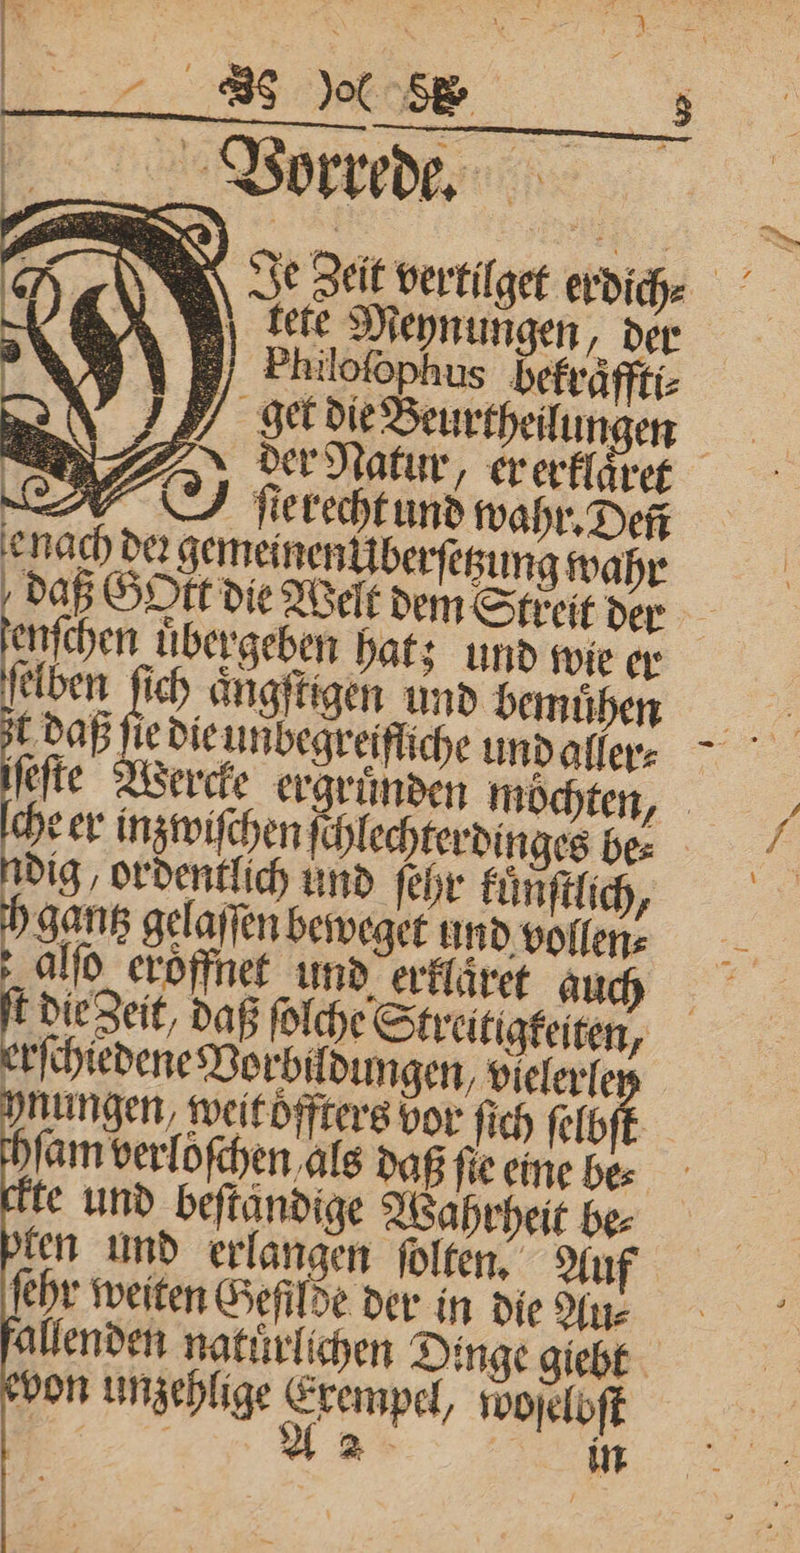 )o(
3
Vorrede.
DJe Zeit vertilget erdich⸗
tete Meynungen, der
Philoſophus bekraͤffti⸗
get die Beurtheilungen
der Natur, er erklaͤret
ſie recht und wahr. Deñ
e nach der gemeinen Uberſetzung wahr
, daß GOtt die Welt dem Streit der
enſchen uͤbergeben hat; und wie er
ſelben ſich aͤngſtigen und bemuͤhen
zt daß ſie die unbegreifliche und aller⸗
iſeſte Wercke ergruͤnden moͤchten,
lche er inzwiſchen ſchlechterdinges be⸗
ndig, ordentlich und ſehr kuͤnſtlich,
h gantz gelaſſen beweget und vollen⸗
: alſo eroͤffnet und erklaͤret auch
ſt die Zeit, daß ſolche Streitigkeiten,
erſchiedene Vorbildungen, vielerley
ynungen, weit oͤffters vor ſich ſelbſt
hſam verloͤſchen, als daß ſie eine be⸗
ckte und beſtaͤndige Wahrheit be⸗
pten und erlangen ſolten. Auf
ſehr weiten Gefilde der in die Au⸗
fallenden natuͤrlichen Dinge giebt
evon unzehlige Exempel, woſelbſt
A 2
in